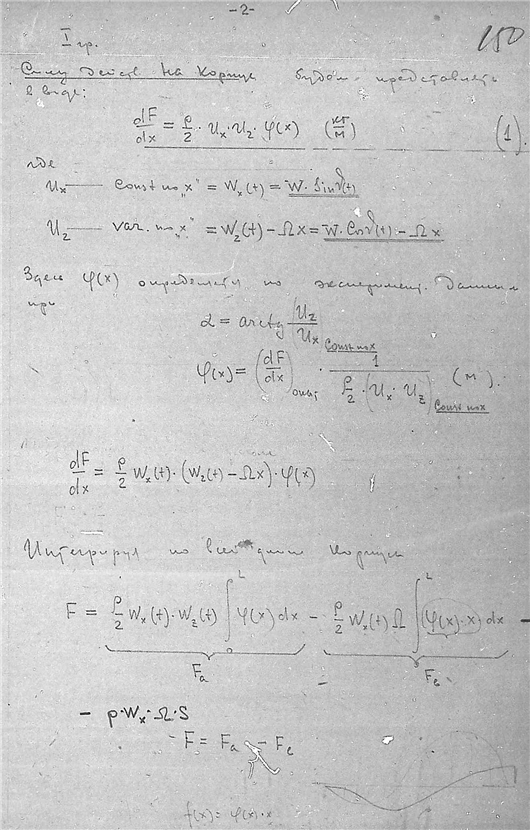 -2-
150
I гр.
Силу действ. на корпус будем представлять
в виде:
dF/dx = ρ/2 · Ux · Uz · φ(x) (кг/м) (1).
где
Ux — const по „x" = Wx(t) = W · Sin ϑ(t)
Uz — var. по „x" = Wz(t) - Ωx = W · Cos ϑ(t) - Ωx
Здесь φ(x) определяется по эксперимент. данным
при
α = arctg (Uz/Ux) const по x
φ(x) = (dF/dx) опыт · 1/(ρ/2 · (Ux · Uz) const по x) (м).
dF/dx = ρ/2 Wx(t) · (Wz(t) - Ωx) · φ(x)
Интегрируя по всей длине корпуса
F = ρ/2 Wx(t) · Wz(t) ∫₀ᴸ φ(x) dx - ρ/2 Wx(t) Ω ∫₀ᴸ (φ(x) · x) dx -
Fa Fв
- ρ · Wx · Ω · S
F = Fa - Fв
f(x) = φ(x) · x